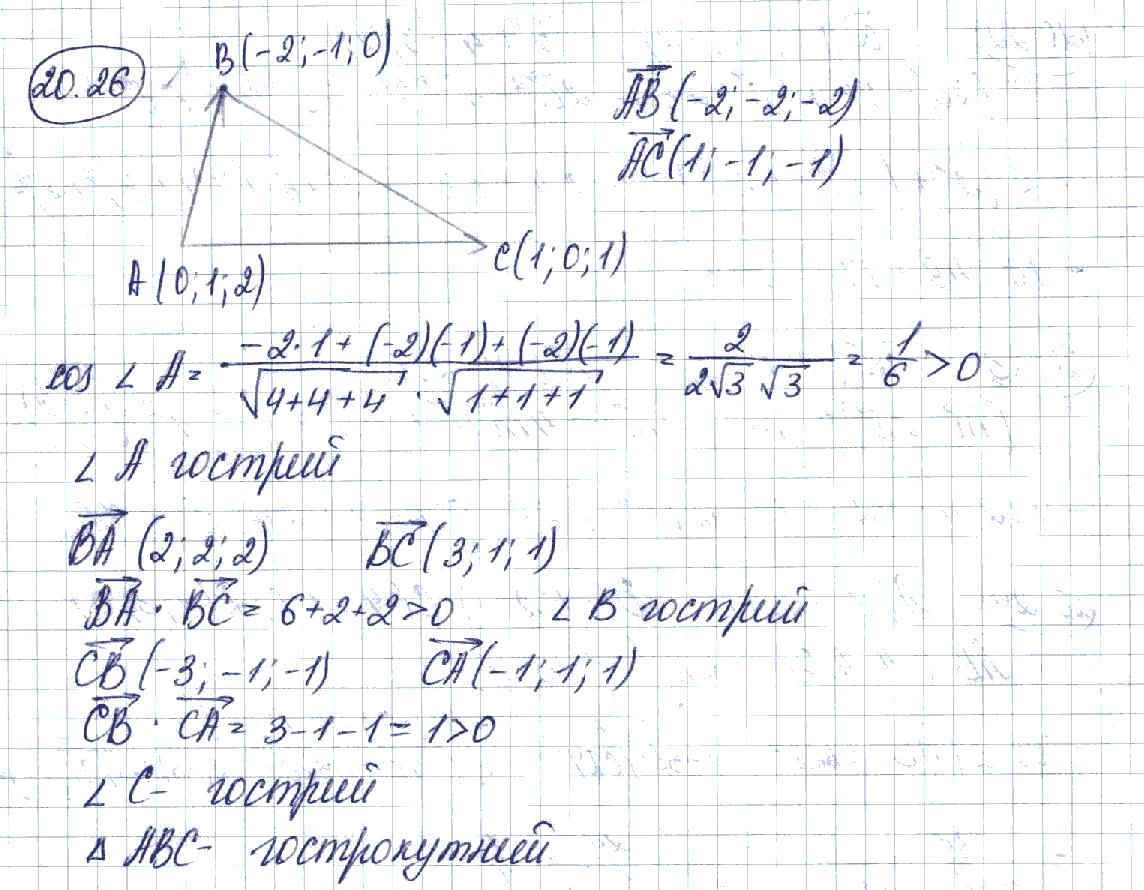 20.26
B(-2; -1; 0)
AB(-2; -2; -2)
AC(1; -1; -1)
A(0; 1; 2)
C(1; 0; 1)
cos ∠ A = (-2·1 + (-2)(-1) + (-2)(-1)) / (√4+4+4 · √1+1+1) = 2 / (2√3 √3) = 1/6 > 0
∠ A гострий
BA (2; 2; 2) BC(3; 1; 1)
BA · BC = 6+2+2>0 ∠ B гострий
CB(-3; -1; -1) CA(-1; 1; 1)
CB · CA = 3-1-1 = 1>0
∠ C- гострий
Δ ABC- гострокутний